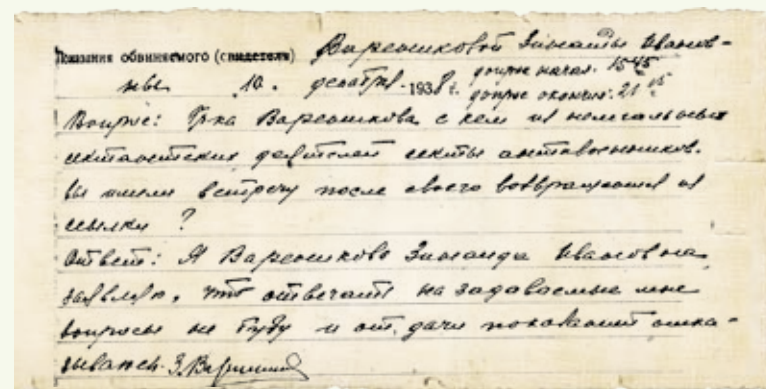 Показания обвиняемого (свидетеля) Вареошиковой Зинаиды Иванов-
ны 10. декабря 1938 г. допрос начат. 15 45
допрос окончен. 21 15
Вопрос: Гр-ка Вареошикова с кем из нелегальных
сектантских деятелей секты антивоенников.
вы имели встречу после своего возвращения из
ссылки ?
Ответ: Я Вареошикова Зинаида Ивановна
заявляю, что отвечать на задаваемые мне
вопросы не буду и от дачи показаний отка-
зываюсь.